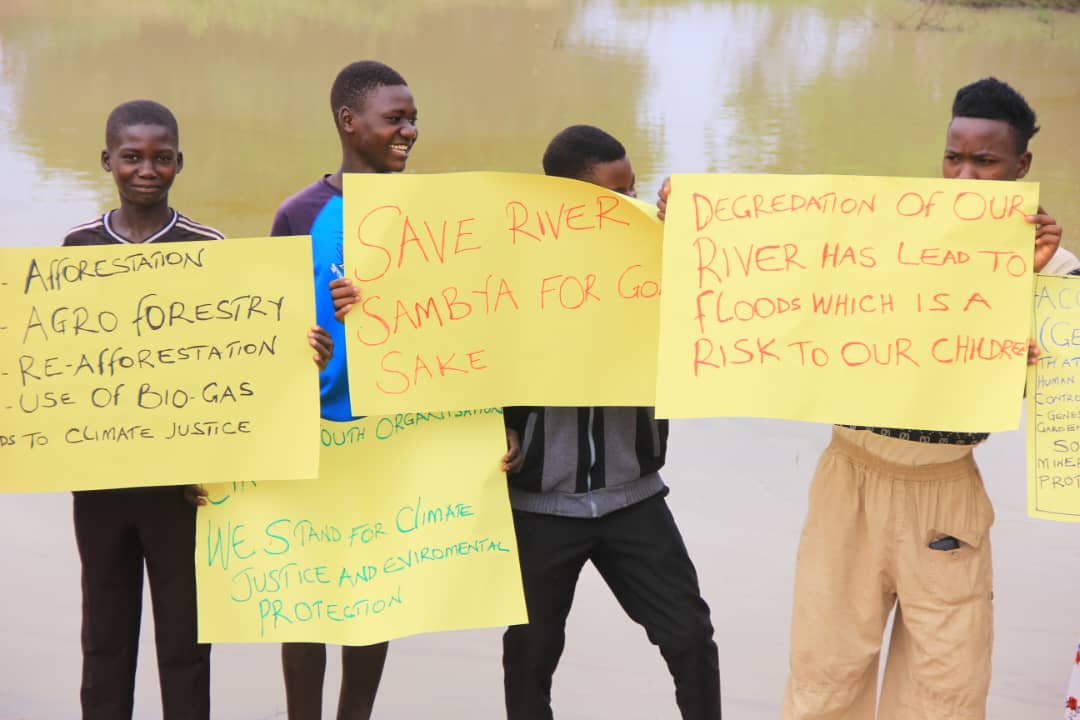 - AFFORESTATION
- AGRO FORESTRY
- RE-AFFORESTATION
- USE OF BIO-GAS
DS TO CLIMATE JUSTICE
OUTH ORGANISATION
WE STAND FOR CLIMATE
JUSTICE AND EVIROMENTAL
PROTECTION
SAVE RIVER
SAMBYA FOR GO
SAKE
DEGREDATION OF OUR
RIVER HAS LEAD TO
FLOODS WHICH IS A
RISK TO OUR CHILDRE
ACC
(GE
THAT
HUMAN
CONTRO
- GENES
GARDEN
SO
MINER
PROT